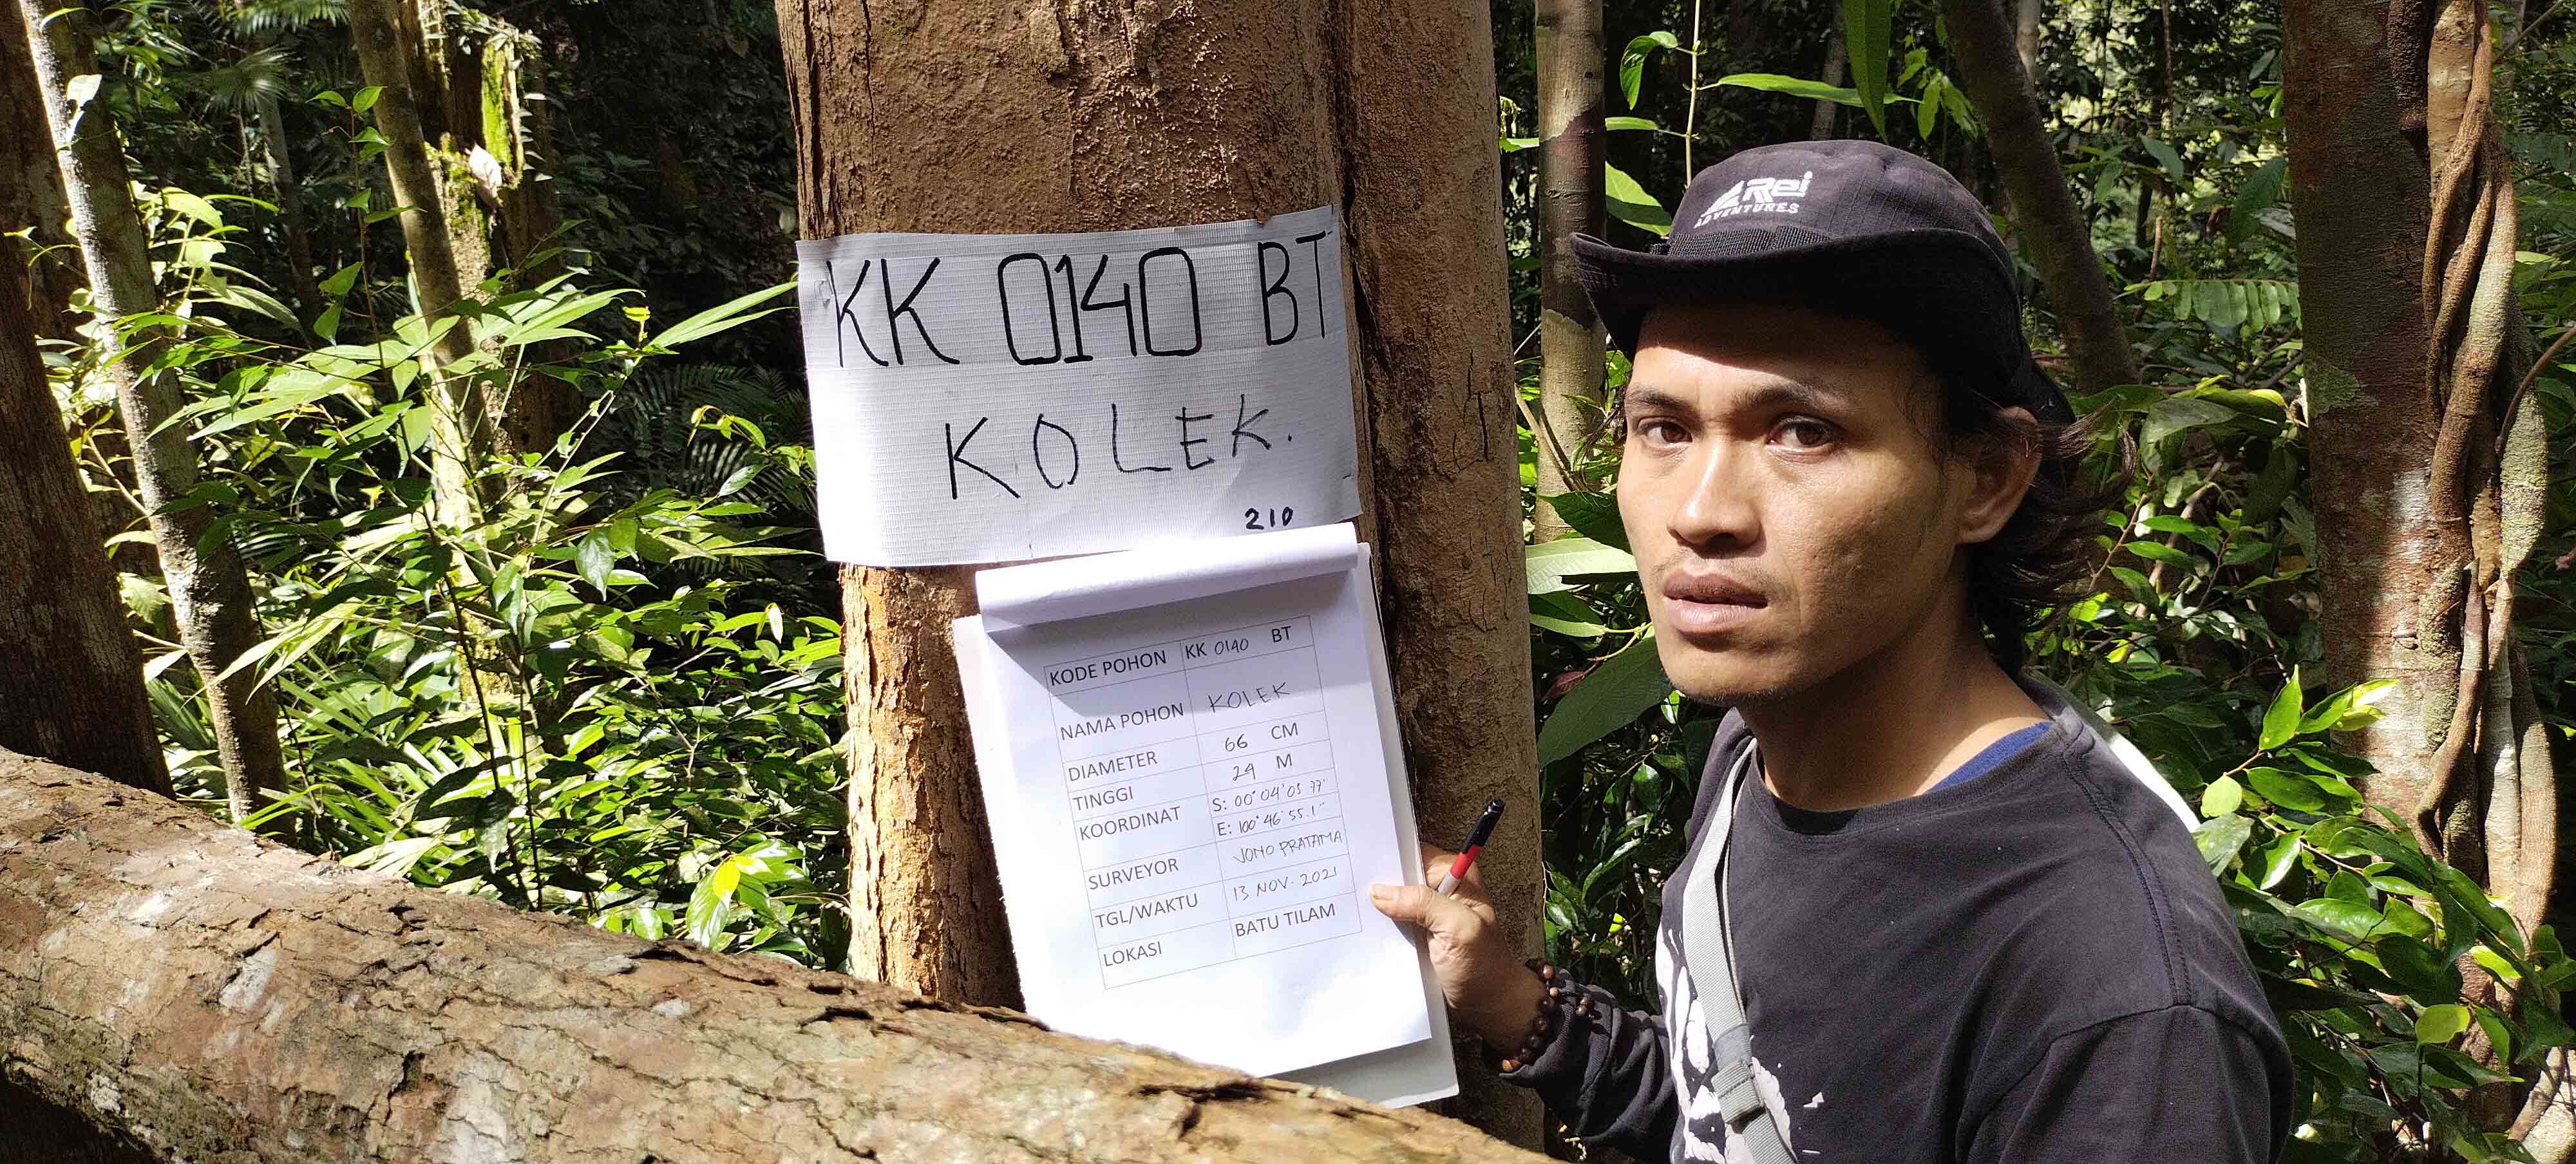 ARei
ADVENTURES
KK 0140 BT
KOLEK.
210
KODE POHON KK 0140 BT
NAMA POHON KOLEK
DIAMETER 66 CM
TINGGI 24 M
KOORDINAT S: 00° 04' 05 77"
E: 100° 46' 55.1"
SURVEYOR JONO PRATAMA
TGL/WAKTU 13 NOV. 2021
LOKASI BATU TILAM